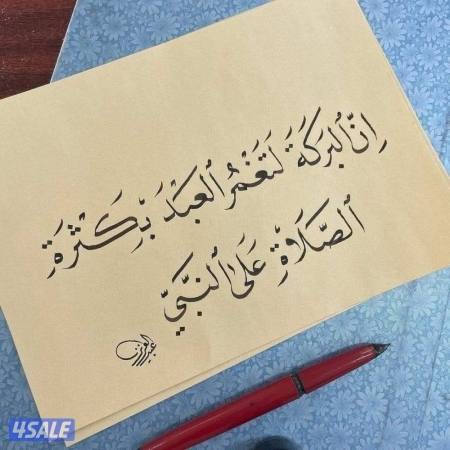 إِنَّ ٱلبَرَكَةَ لَتَغْمُرُ ٱلعَبْدَ بِكَثْرَةِ
ٱلصَّلَاةِ عَلَى ٱلنَّبَيِّ
4SALE